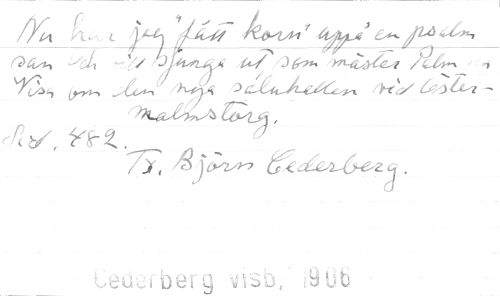 Nu har jag "fått korn" uppå en psalm
san och vill sjunga ut som mäster Palm en
Visa om den nya saluhallen vid Öster-
malmstorg.
Sid. 482.
Tr. Björn Cederberg.
Cederberg visb, 1906